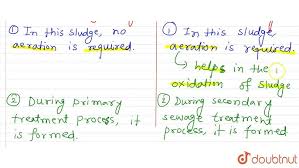 ① In this sludge, no
aeration is required.
② During primary
treatment process, it
is formed.
① In this sludge
aeration is required.
↓
helps in the
oxidation of sludge
② During secondary
sewage treatment
process, it is formed
doubtnut